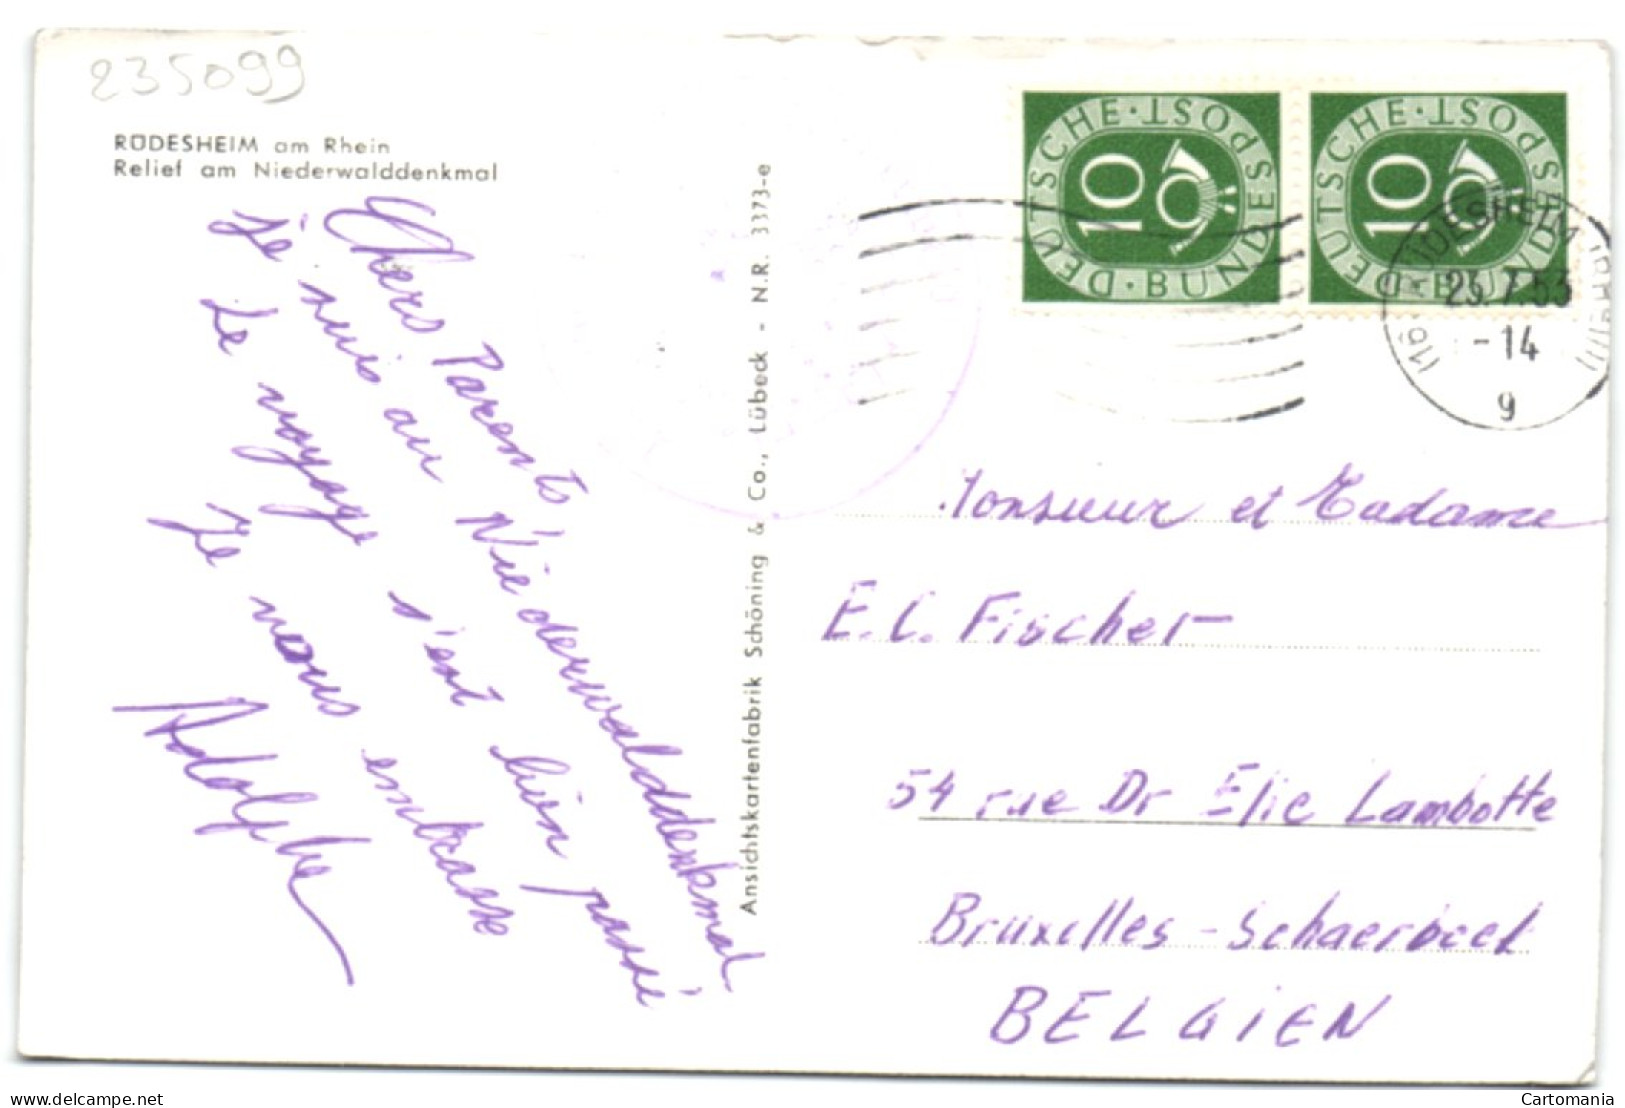 235099
RÜDESHEIM am Rhein
Relief am Niederwalddenkmal
Chers Parents
Je suis au Niederwalddenkmal
Le voyage s'est bien passé
Je vous embrasse
Adolphe
Ansichtskartenfabrik Schöning & Co., Lübeck - N.R. 3373-e
DEUTSCHE · BUNDESPOST
10
DEUTSCHE · BUNDESPOST
10
RÜDESHEIM (RHEIN)
23.7.53
-14
g
Monsieur et Madame
E.C. Fischer
54 rue Dr Elie Lambotte
Bruxelles - Schaerbeek
BELGIEN
delcampe.net
Cartomania